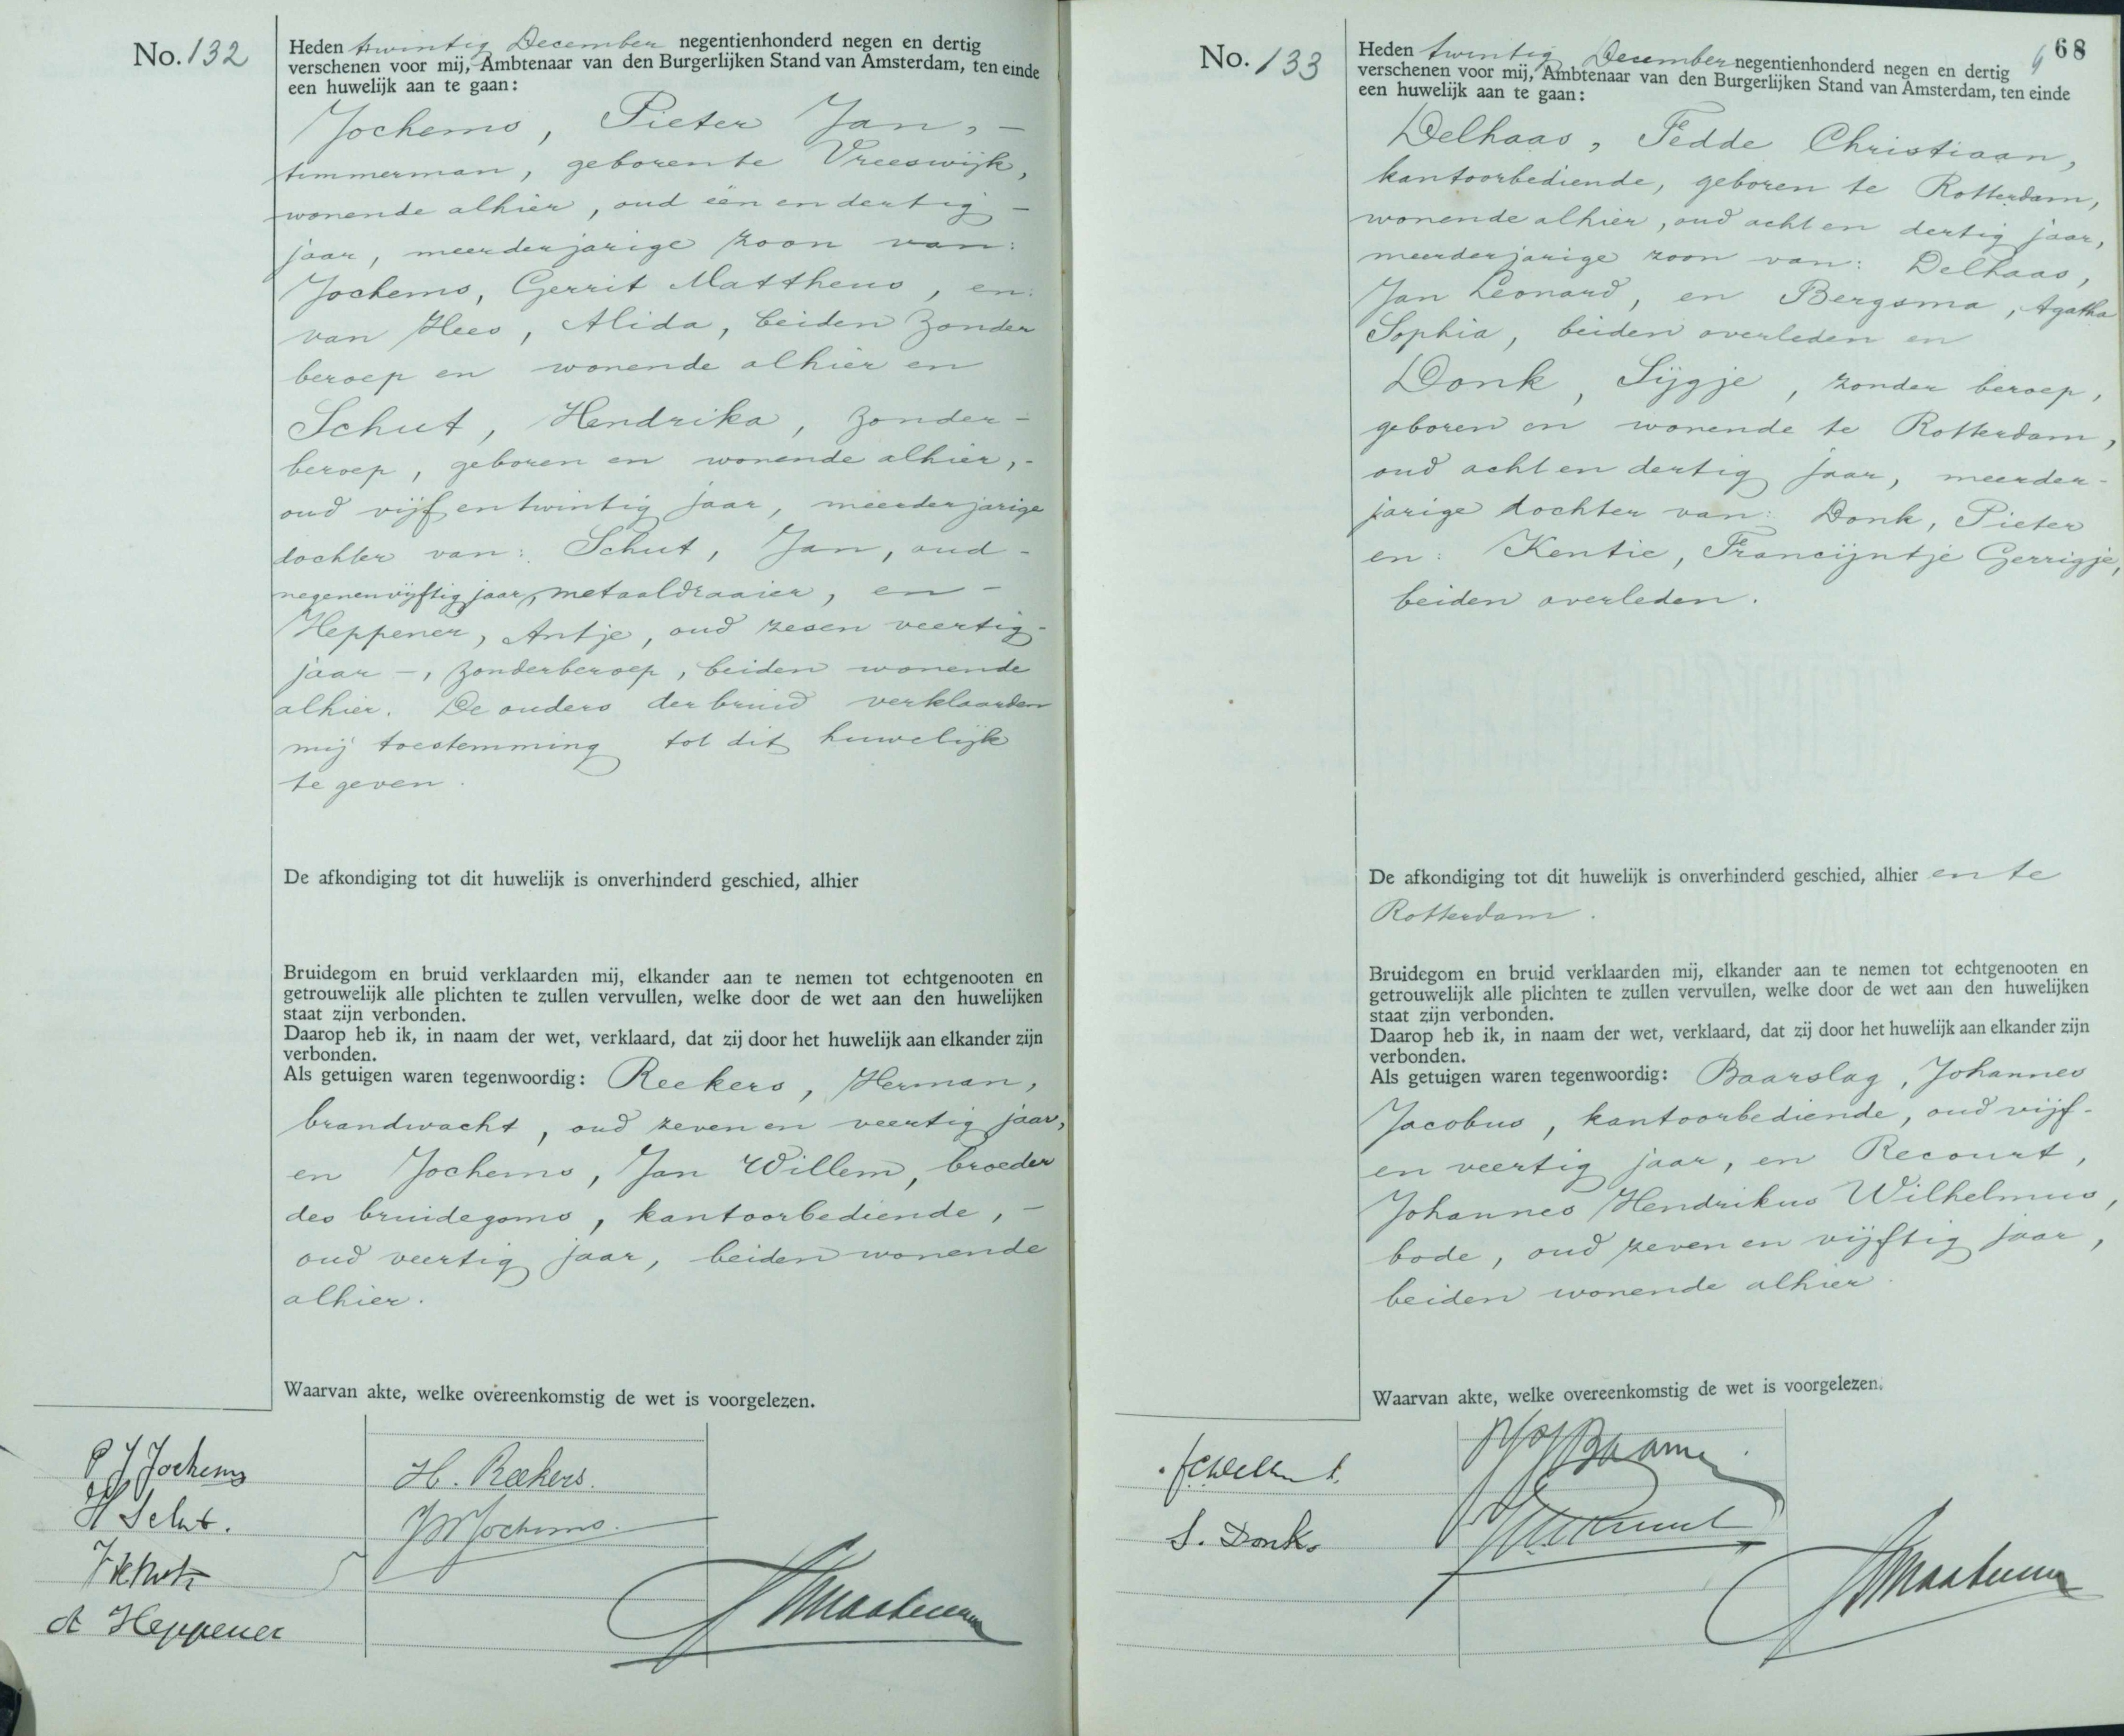 No. 132
Heden twintig December negentienhonderd negen en dertig
verschenen voor mij, Ambtenaar van den Burgerlijken Stand van Amsterdam, ten einde
een huwelijk aan te gaan:
Jochems, Pieter Jan, -
timmerman, geboren te Vreeswijk,
wonende alhier, oud één en dertig -
jaar, meerderjarige zoon van:
Jochems, Gerrit Mattheus, en:
van Hees, Alida, beiden zonder
beroep en wonende alhier en
Schut, Hendrika, zonder -
beroep, geboren en wonende alhier, -
oud vijf en twintig jaar, meerderjarige
dochter van: Schut, Jan, oud -
negenenvijftig jaar, metaaldraaier, en -
Heppener, Antje, oud zesen veertig -
jaar -, zonder beroep, beiden wonende
alhier. De ouders der bruid verklaarden
mij toestemming tot dit huwelijk
te geven.
De afkondiging tot dit huwelijk is onverhinderd geschied, alhier
Bruidegom en bruid verklaarden mij, elkander aan te nemen tot echtgenooten en
getrouwelijk alle plichten te zullen vervullen, welke door de wet aan den huwelijken
staat zijn verbonden.
Daarop heb ik, in naam der wet, verklaard, dat zij door het huwelijk aan elkander zijn
verbonden.
Als getuigen waren tegenwoordig: Reekers, Herman,
brandwacht, oud zeven en veertig jaar,
en Jochems, Jan Willem, broeder
des bruidegoms, kantoorbediende, -
oud veertig jaar, beiden wonende
alhier.
Waarvan akte, welke overeenkomstig de wet is voorgelezen.
P J Jochems
H Schut.
A Heppener
H. Reekers.
JW Jochems.
68
No. 133
Heden twintig December negentienhonderd negen en dertig
verschenen voor mij, Ambtenaar van den Burgerlijken Stand van Amsterdam, ten einde
een huwelijk aan te gaan:
Delhaas, Fedde Christiaan,
kantoorbediende, geboren te Rotterdam,
wonende alhier, oud acht en dertig jaar,
meerderjarige zoon van: Delhaas,
Jan Leonard, en Bergsma, Agatha
Sophia, beiden overleden en
Donk, Sijgje, zonder beroep,
geboren en wonende te Rotterdam,
oud acht en dertig jaar, meerder-
jarige dochter van: Donk, Pieter
en: Kentie, Francijntje Gerrigje,
beiden overleden.
De afkondiging tot dit huwelijk is onverhinderd geschied, alhier en te
Rotterdam.
Bruidegom en bruid verklaarden mij, elkander aan te nemen tot echtgenooten en
getrouwelijk alle plichten te zullen vervullen, welke door de wet aan den huwelijken
staat zijn verbonden.
Daarop heb ik, in naam der wet, verklaard, dat zij door het huwelijk aan elkander zijn
verbonden.
Als getuigen waren tegenwoordig: Baarslag, Johannes
Jacobus, kantoorbediende, oud vijf-
en veertig jaar, en Recourt,
Johannes Hendrikus Wilhelmus,
bode, oud zeven en vijftig jaar,
beiden wonende alhier.
Waarvan akte, welke overeenkomstig de wet is voorgelezen.
S. Donk.